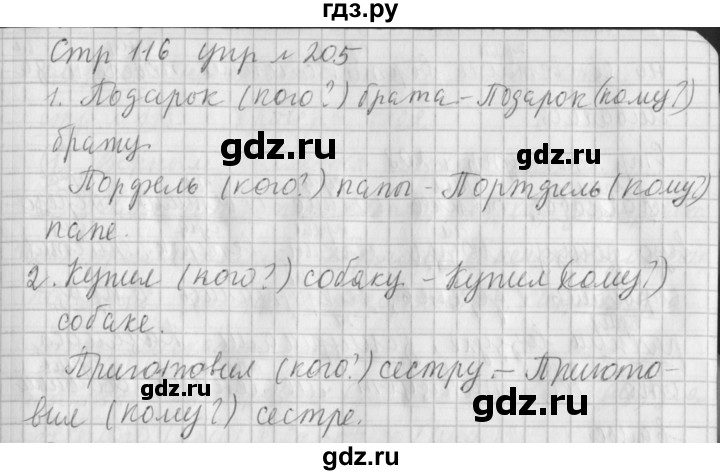 гдз.ру
Стр 116 упр № 205
1. Подарок (кого?) брата – Подарок (кому?)
брату.
gdz.ru
gdz.ru
Порфель (кого?) папы – Портфель (кому?)
папе.
2. Купил (кого?) собаку – Купил (кому?)
собаке.
gdz.ru
gdz.ru
Приготовил (кого?) сестру. – Пригото-
вил (кому?) сестре.
gdz.ru